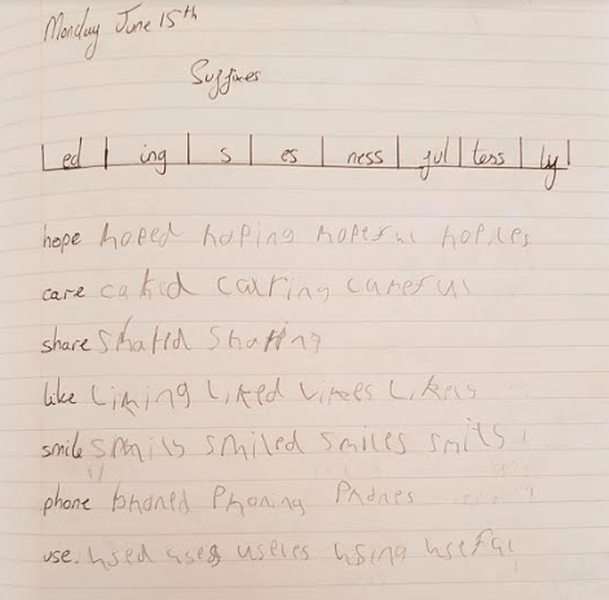 Monday June 15th
Suffixes
ed | ing | s | es | ness | ful | less | ly
hope hoped hoping hopeful hoples
care cared caring careful
share shared sharing
like Liking Liked Likes
smile smiled smiles
phone phoned Phoning Phones
use. used uses useles using useful